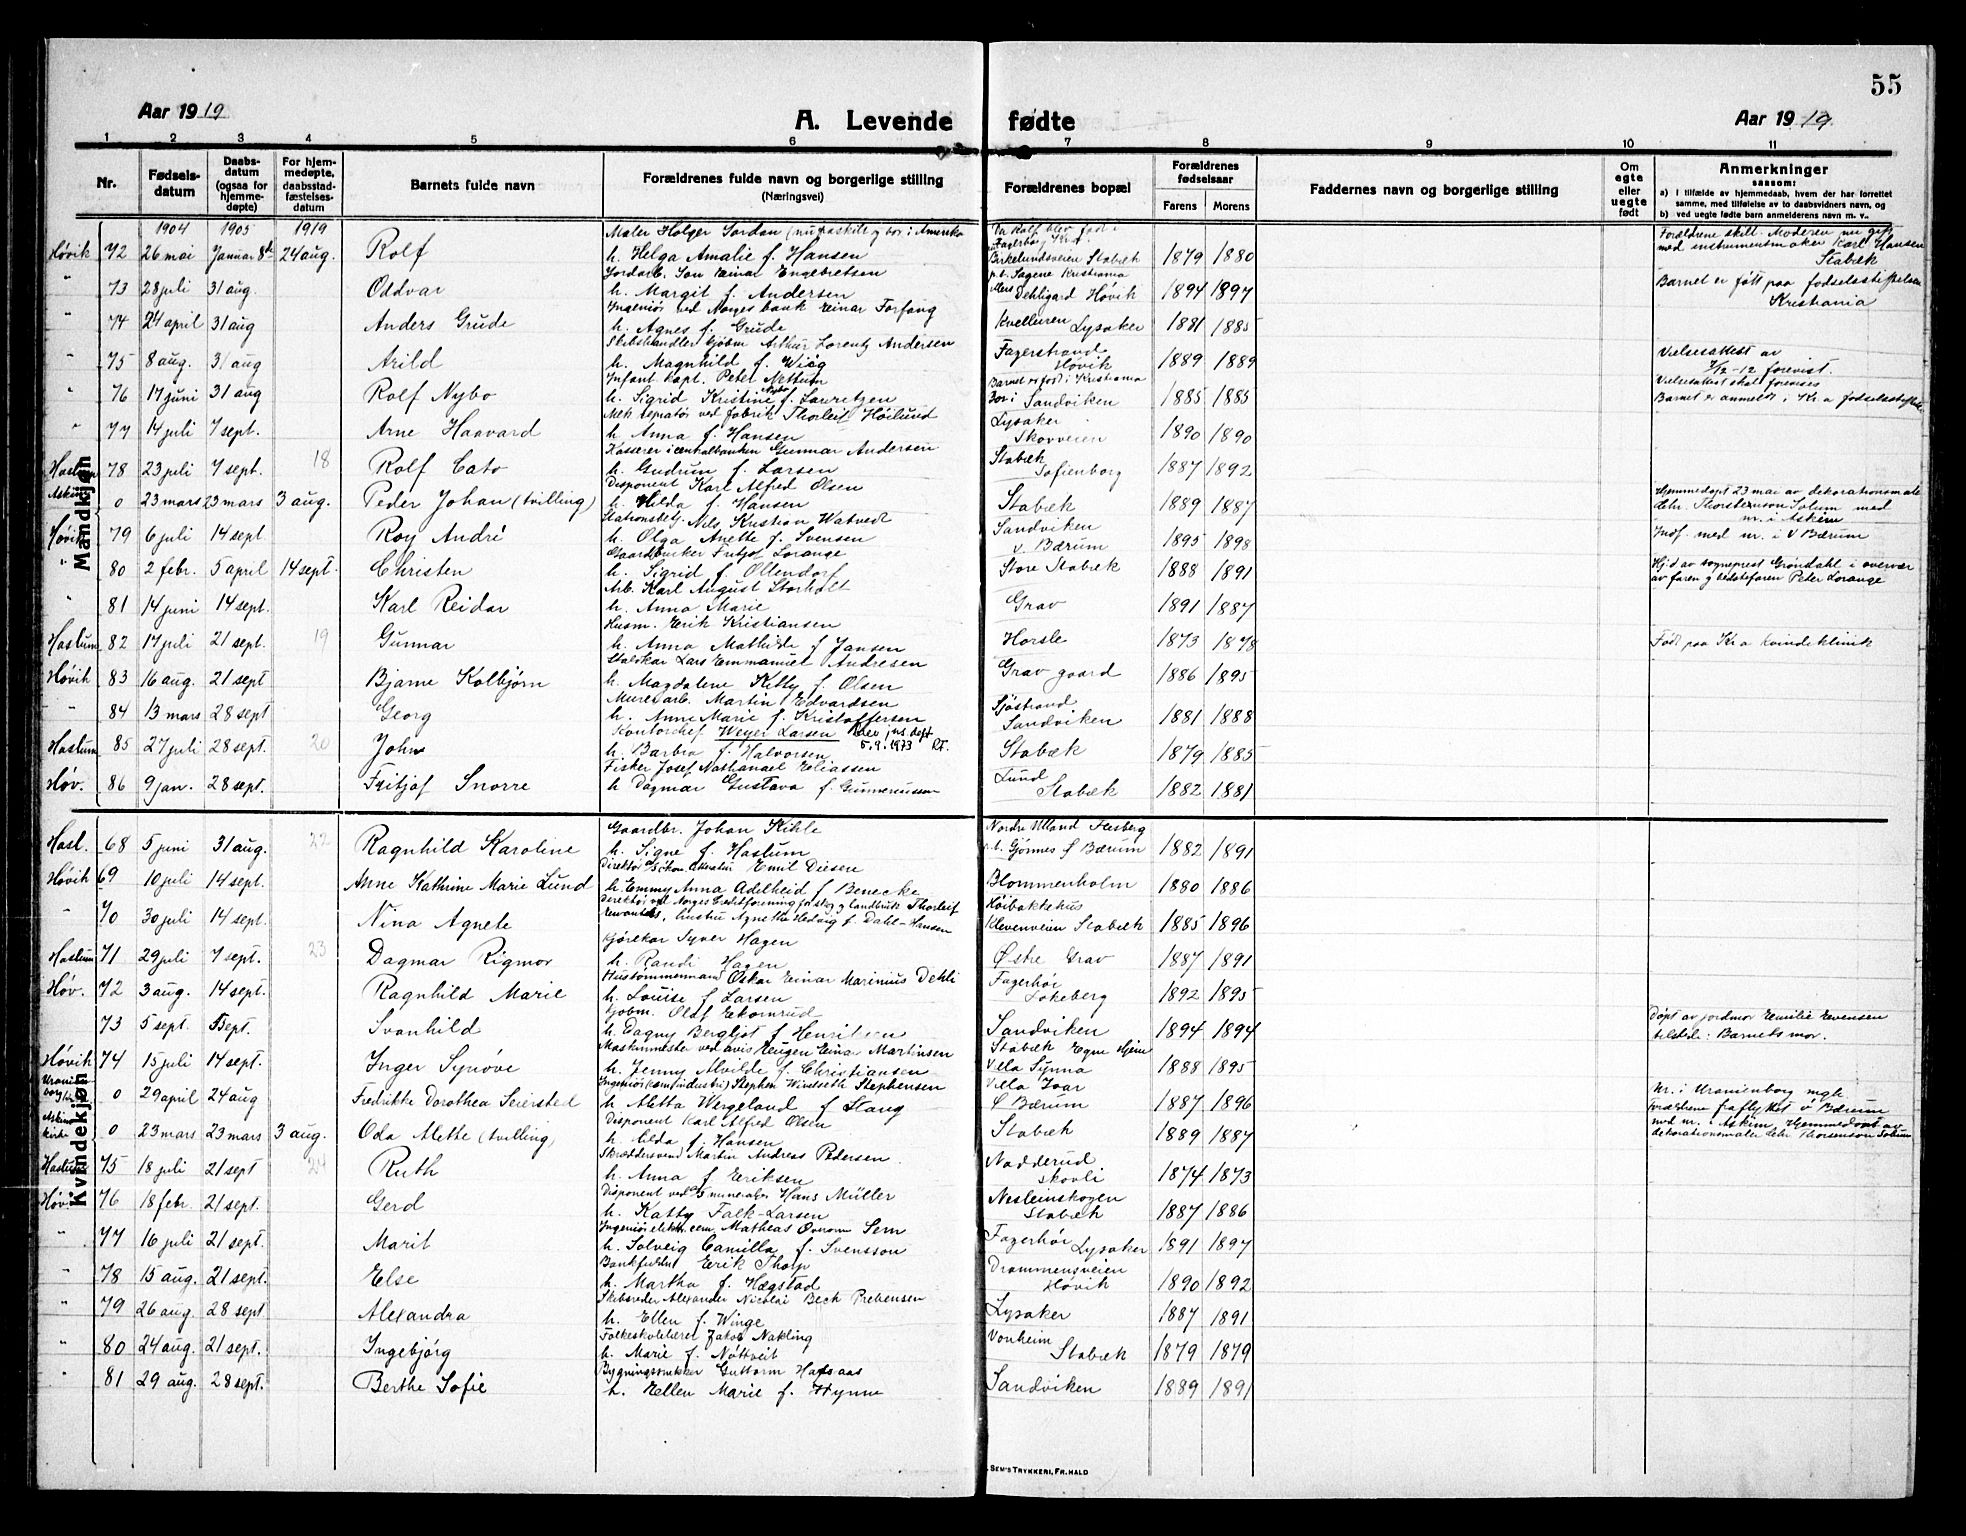 55
Aar 1919
A. Levende fødte
Aar 1919
1 2 3 4 5 6 7 8 9 10 11
Nr.
Fødsels-
datum
Daabs-
datum
(ogsaa for
hjemme-
døpte)
For hjem-
medøpte,
daabsstad-
fæstelses-
datum
Barnets fulde navn
Forældrenes fulde navn og borgerlige stilling
(Næringsvei)
Forældrenes bopæl
Forældrenes
fødselsaar
Farens Morens
Faddernes navn og borgerlige stilling
Om
egte
eller
uegte
født
Anmerkninger
saasom:
a) i tilfælde av hjemmedaab, hvem der har forrettet
samme, med tilføielse av to daabsvidners navn, og
b) ved uegte fødte barn anmelderens navn m. v.
Mandkjøn
1904 1905 1919
Maler Holger Jordan
Forældrene skilt. Moderen nu gift
Høvik 72 26 mai Januar 8de 24 aug. Rolf h. Helga Amalie f. Hansen Birkelundsveien Stabæk 1879 1880 med instrumentmaker Karl Hansen
Stabæk
Einar Engebretsen Sagene Kristiania
" 73 28 juli 31 aug. Oddvar h. Margit f. Andersen Høvik 1894 1897 Barnet er født paa fødselsstiftelsen
Kristiania
Ingeniør ved Norges bank Einar Forfang
" 74 24 april 31 aug Anders Grude h. Agnes f. Grude Lysaker 1881 1885
Arthur Lorentz Andersen Fagerstrand
" 75 8 aug. 31 aug Arild h. Magnhild f. Wiig Høvik 1889 1889 Vielsesattest av
7/12-12 forevist.
Infant. kapt. Peter Nettum Barnet er født i Kristiania Vielsesattest skal forevises
" 76 17 juni 31 aug Rolf Nybo h. Sigrid Kristine Nybo f. Lauritzen Bor i Sandviken 1885 1885 Barnet er anmeldt i Kr.a fødselsstiftelse
Mek. reparatør ved fabrik Thorleif Høilund Lysaker
" 77 14 juli 7 sept. Arne Haavard h. Anna f. Hansen Skovveien 1890 1890
Kasserer i centralbanken Gunnar Andersen Stabæk
Haslum 78 23 juli 7 sept. 18 Rolf Cato h. Gudrun f. Larsen Sofienborg 1887 1892
Disponent Karl Alfred Olsen
Askim 0 23 mars 23 mars 3 aug. Peder Johan (tvilling) h. Hilda f. Hansen Stabæk 1889 1887 Hjemmedøpt 23 mai av dekorationsmaler
Chr. Thorstensson Solum med
nr. i Askim
Stationsbetj. Nils Kristian Watvedt Sandviken
Høvik 79 6 juli 14 sept. Roy André h. Olga Anette f. Svensen V. Bærum 1895 1898 Indf. med nr. i V Bærum
Gaardbruker Fritjof Lorange
" 80 2 febr. 5 april 14 sept. Christen h. Sigrid f. Ollendorf Store Stabæk 1888 1891 Hj.d av sogneprest Grøndahl i overvær
av faren og bedstefaren Peter Lorange
Arb. Karl August Storholt
" 81 14 juni 14 sept. Karl Reidar h. Anna Marie Grav 1891 1887
Husm. Erik Kristiansen
Haslum 82 17 juli 21 sept. 19 Gunnar h. Anna Mathilde f Jansen Horsle 1873 1878 Født paa Kr.a kvindeklinik
Lars Emmanuel Andresen
Høvik 83 16 aug. 21 sept Bjarne Kolbjørn h. Magdalene Kitty f. Olsen Grav gaard 1886 1895
Murerarb. Martin Edvardsen Sjøstrand
" 84 13 mars 28 sept Georg h. Anne Marie f. Kristoffersen Sandviken 1881 1888
Kontorchef Weyer Larsen 5.9.1973
Haslum 85 27 juli 28 sept. 20 John h. Barbra f. Halvorsen Stabæk 1879 1885
Fisker Josef Nathanael Eliassen Lund
Høv. 86 9 jan. 28 sept. Fritjof Snorre h Dagmar Gustava f. Gunneriussen Stabæk 1882 1881
Kvindekjøn
Gaardbr. Johan Kihle Nordre Ulland Flesberg
Hasl. 68 5 juni 31 aug. 22 Ragnhild Karoline h. Signe f. Haslum p.t. Gjønnes Ø Bærum 1882 1891
Emil Diesen
Høvik 69 10 juli 14 sept. Anne Kathrine Marie Lund h. Emmy Anna Adelheid f Benecke Blommenholm 1880 1886
Direktør ved Norges Creditforening for skog og landbruk Thorleif Høibakkehus
" 70 30 juli 14 sept. Nina Agnete hustru Agnethe Hedvig f. Dahl-Hansen Klevenveien Stabæk 1885 1896
Kjørekar Syver Hagen
Haslum 71 29 juli 7 sept. 23 Dagmar Rigmor h. Randi Hagen Østre Grav 1887 1891
Hustømmermand Oskar Einar Marinius Dehli Fagerhøi
Høv. 72 3 aug. 14 sept. Ragnhild Marie h. Louise f Larsen Løkeberg 1892 1895
Kjøbm. Olaf Ekornrud
73 5 sept. 5 sept. Svanhild h. Dagny Bergljot f Henriksen Sandviken 1894 1894 Døpt av jordmor Emilie Evensen
tilstede: Barnets mor.
Maskinmester Eugen Einar Martinsen Stabæk Egne Hjem
Høvik 74 15 juli 14 sept. Inger Synøve h. Jenny Alvilde f Christiansen Villa Synna 1888 1895
Ingeniør Stephen Windseth Stephensen Villa Ivar
Uranienborg 0 29 april 24 aug Fredrikke Dorothea Seiersted h Aletta Wergeland f Stang Ø Bærum 1887 1896 Nr. i Uranienborg mgh.
Forældrene fraflyttet Ø Bærum
Disponent Karl Alfred Olsen
Askim kirke 0 23 mars 23 mars 3 aug. Oda Alette (tvilling) h. Hilda f. Hansen Stabæk 1889 1887 med nr. i Askim. Hjemmedøpt av
dekorationsmaler Chr Thorsenson Solum
Skræddersvend Martin Andreas Pedersen Nadderud
Haslum 75 18 juli 21 sept 24 Ruth h. Anna f Eriksen Skovli 1874 1873
Disponent Hans Müller
Høvik 76 18 febr. 21 sept. Gerd h. Katty Falk-Larsen Stabæk 1887 1886
Mathias Sem Fagerhøi
" 77 16 juli 21 sept. Marit h. Solveig Camilla f. Svensson Lysaker 1891 1897
Erik Thorp Drammensveien
" 78 15 aug. 21 sept. Else h. Martha f. Hægstad Høvik 1890 1892
Skibsreder Alexander Nicolai Bech Prebensen
" 79 26 aug. 28 sept Alexandra h. Ellen f. Winge Lysaker 1887 1891
Folkeskolelærer Jakob Nakling Vonheim
" 80 24 aug. 21 sept. Ingebjørg h. Marie f. Nøttveit Stabæk 1879 1879
Guttorm Hafsaas
" 81 29 aug. 28 sept. Berthe Sofie h. Ellen Marie f. Hynne Sandviken 1889 1891
SEM'S TRYKKERI, FR.HALD